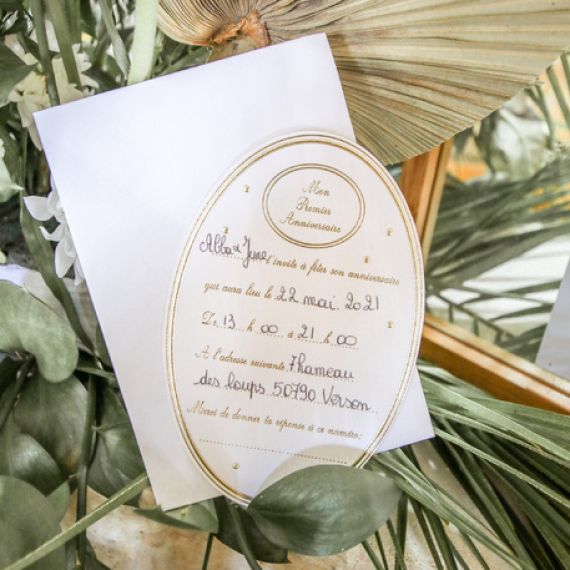 Mon
Premier
Anniversaire
Abba & June t'invite à fêter son anniversaire
qui aura lieu le 22 mai 2021
De 13 h 00 à 21 h 00
A l'adresse suivante 7 hameau
des loups 50790 Verson
Merci de donner ta réponse à ce numéro: